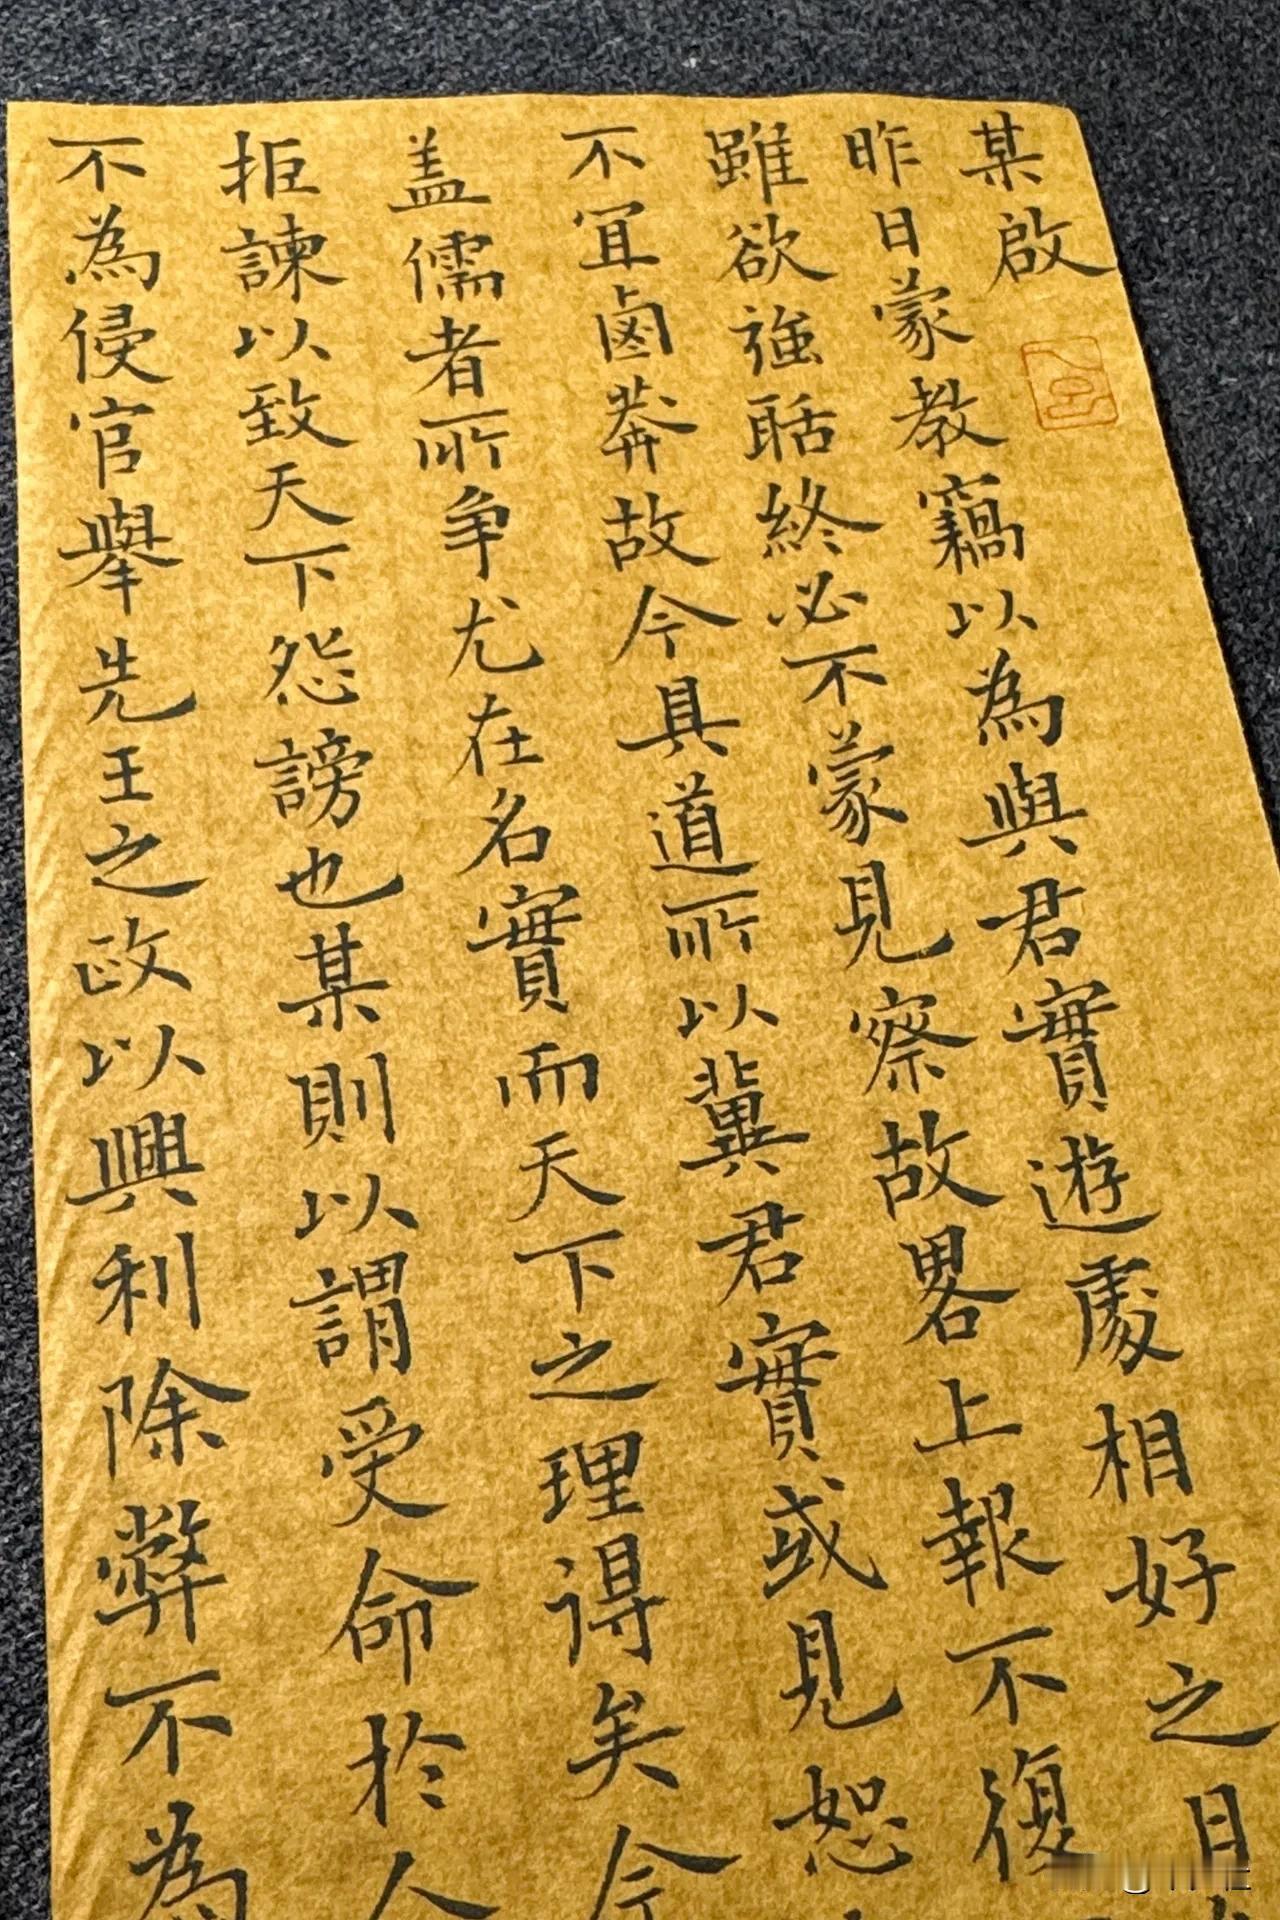 某啟
昨日蒙教竊以為與君實遊處相好之日
雖欲強聒終必不蒙見察故畧上報不復
不宜鹵莽故今具道所以冀君實或見恕
盖儒者所争尤在名實而天下之理得矣今
拒諫以致天下怨謗也某則以謂受命於人
不為侵官舉先王之政以興利除弊不為